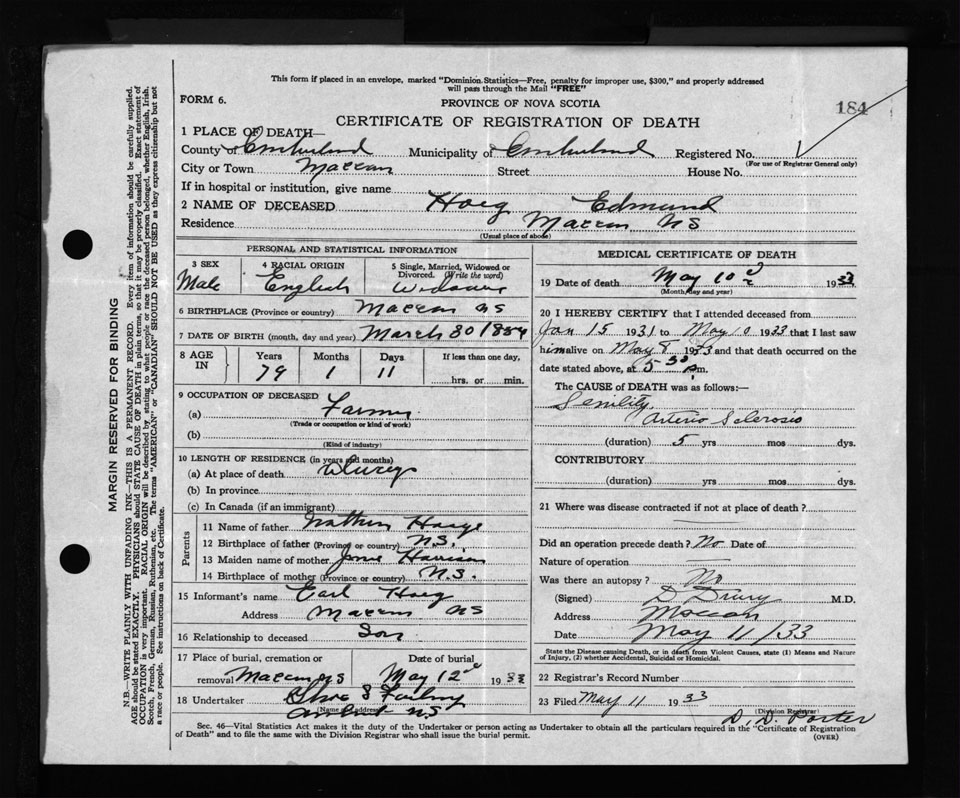 This form if placed in an envelope, marked "Dominion Statistics—Free, penalty for improper use, $300," and properly addressed
will pass through the Mail "FREE"
FORM 6.
PROVINCE OF NOVA SCOTIA
184
CERTIFICATE OF REGISTRATION OF DEATH
1 PLACE OF DEATH—
County of Cumberland Municipality of Cumberland Registered No.
(For use of Registrar General only)
City or Town Maccan Street House No.
If in hospital or institution, give name
2 NAME OF DECEASED Hoeg Edmund
Residence Maccan NS
(Usual place of abode)
PERSONAL AND STATISTICAL INFORMATION
3 SEX 4 RACIAL ORIGIN 5 Single, Married, Widowed or Divorced. (Write the word)
Male English Widower
6 BIRTHPLACE (Province or country) Maccan NS
7 DATE OF BIRTH (month, day and year) March 30 1854
8 AGE IN Years Months Days If less than one day,
79 1 11 hrs. or min.
9 OCCUPATION OF DECEASED
(a) Farmer
(Trade or occupation or kind of work)
(b)
(Kind of industry)
10 LENGTH OF RESIDENCE (in years and months)
(a) At place of death always
(b) In province
(c) In Canada (if an immigrant)
Parents
11 Name of father
12 Birthplace of father (Province or country) N.S.
13 Maiden name of mother Harrison
14 Birthplace of mother (Province or country) N.S.
15 Informant's name Earl Hoeg
Address Maccan NS
16 Relationship to deceased Son
17 Place of burial, cremation or Date of burial
removal Maccan NS May 12 1933
18 Undertaker
(Name and address)
Amherst N.S.
MEDICAL CERTIFICATE OF DEATH
19 Date of death May 10 1933
(Month, day and year)
20 I HEREBY CERTIFY that I attended deceased from
Jan 15 1931 to May 10 1933 that I last saw
him alive on May 8 1933 and that death occurred on
date stated above, at 5-30 p.m.
The CAUSE of DEATH was as follows:—
Senility
Arterio Sclerosis
(duration) 5 yrs mos dys.
CONTRIBUTORY
(duration) yrs mos dys.
21 Where was disease contracted if not at place of death?
Did an operation precede death? No Date of
Nature of operation
Was there an autopsy? No
(Signed) D Drury M.D.
Address Maccan
Date May 11/33
State the Disease causing Death, or in death from Violent Causes, state (1) Means and Nature
of Injury, (2) whether Accidental, Suicidal or Homicidal.
22 Registrar's Record Number
23 Filed May 11 1933
(Division Registrar)
D. D. Porter
Sec. 46—Vital Statistics Act makes it the duty of the Undertaker or person acting as Undertaker to obtain all the particulars required in the "Certificate of Registration
of Death" and to file the same with the Division Registrar who shall issue the burial permit.
(OVER)
MARGIN RESERVED FOR BINDING
N.B.—WRITE PLAINLY WITH UNFADING INK—THIS IS A PERMANENT RECORD. Every item of information should be carefully supplied.
AGE should be stated EXACTLY. PHYSICIANS should STATE CAUSE OF DEATH in plain terms, so that it may be properly classified. Exact statement of
OCCUPATION is very important. RACIAL ORIGIN will be described by stating to what people or race the deceased person belonged, whether English, Irish,
Scotch, French, German, Russian, Ruthenian, etc. The terms "AMERICAN" or "CANADIAN" SHOULD NOT BE USED as they express citizenship but not
a race or people. See instructions on back of Certificate.